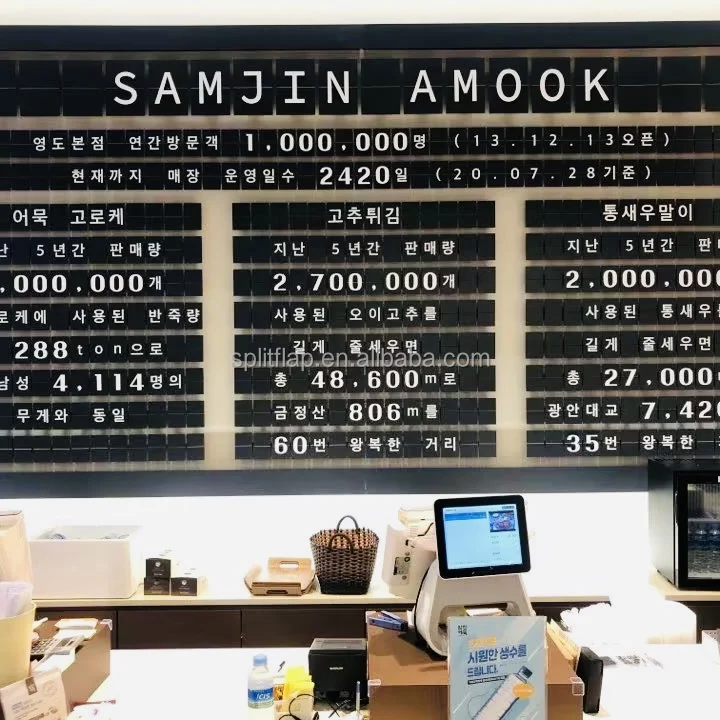 SAMJIN AMOOK
영도본점 연간방문객 1,000,000명 (13.12.13오픈)
현재까지 매장 운영일수 2420일 (20.07.28기준)
어묵 고로케
난 5년간 판매량
,000,000개
로케에 사용된 반죽량
288ton으로
남성 4,114명의
무게와 동일
고추튀김
지난 5년간 판매량
2,700,000개
사용된 오이고추를
길게 줄세우면
총 48,600m로
금정산 806m를
60번 왕복한 거리
통새우말이
지난 5년간 판
2,000,00
사용된 통새우
길게 줄세우면
총 27,000
광안대교 7,42
35번 왕복한
splitflap.en.alibaba.com
시원한 생수를
드립니다.